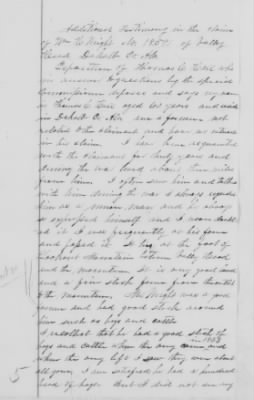 Additional Testimony in the claim
of Wm C Wright No. of Valley
Head Dekalb Co. Ala
Deposition of Thomas C
in answer to questions by the special
Commissioner deposes and says my name
is Thomas C aged 60 years and reside
in Dekalb Co. Ala am a farmer not
related to the claimant and have no interest
in his claim. I have been acquainted
with the claimant for thirty years and
during the war lived about three miles
from him. I often saw him and talked
with him during the war & always regarded
him as a union man and he always
so expressed himself and I never doubted
it I was frequently at his farm
and passed it. It lies at the foot of
Lookout Mountain between Valley Head
and the mountain. It is very good land
and a fine stock farm from
to the mountain. Wm Wright was a good
farmer and had good stock around
him such as hogs and cattle
I recollect that he had a good stock of
in 1863
hogs and cattle when the army came and
when the army left I saw they were about
all gone. I am satisfied he had a hundred
head of hogs. But I did not see any
5